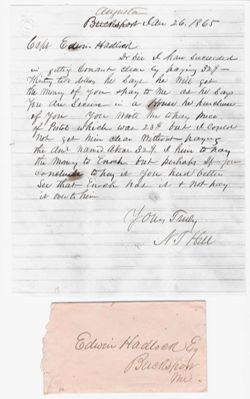 Augusta
Bucksport Jan 26, 1865
Capt Edwin Hadlock
Dr Sir I have succeeded
in getting Conant clear by paying 32$ –
Thirty two dollars he says he will get
the Money of you & pay to me as he says
You are Secure in a House he purchased
of You You wrote me they
of Putt which was 23$ but it could
Not get him clear Without paying
the am't named above 32$. I him to pay
the Money to Enoch but perhaps If you
Conclude to pay it you had better
See that Enoch has it & not pay
it over to him
Yours Truly
N T Hill
Edwin Hadlock Esq
Bucksport
Me